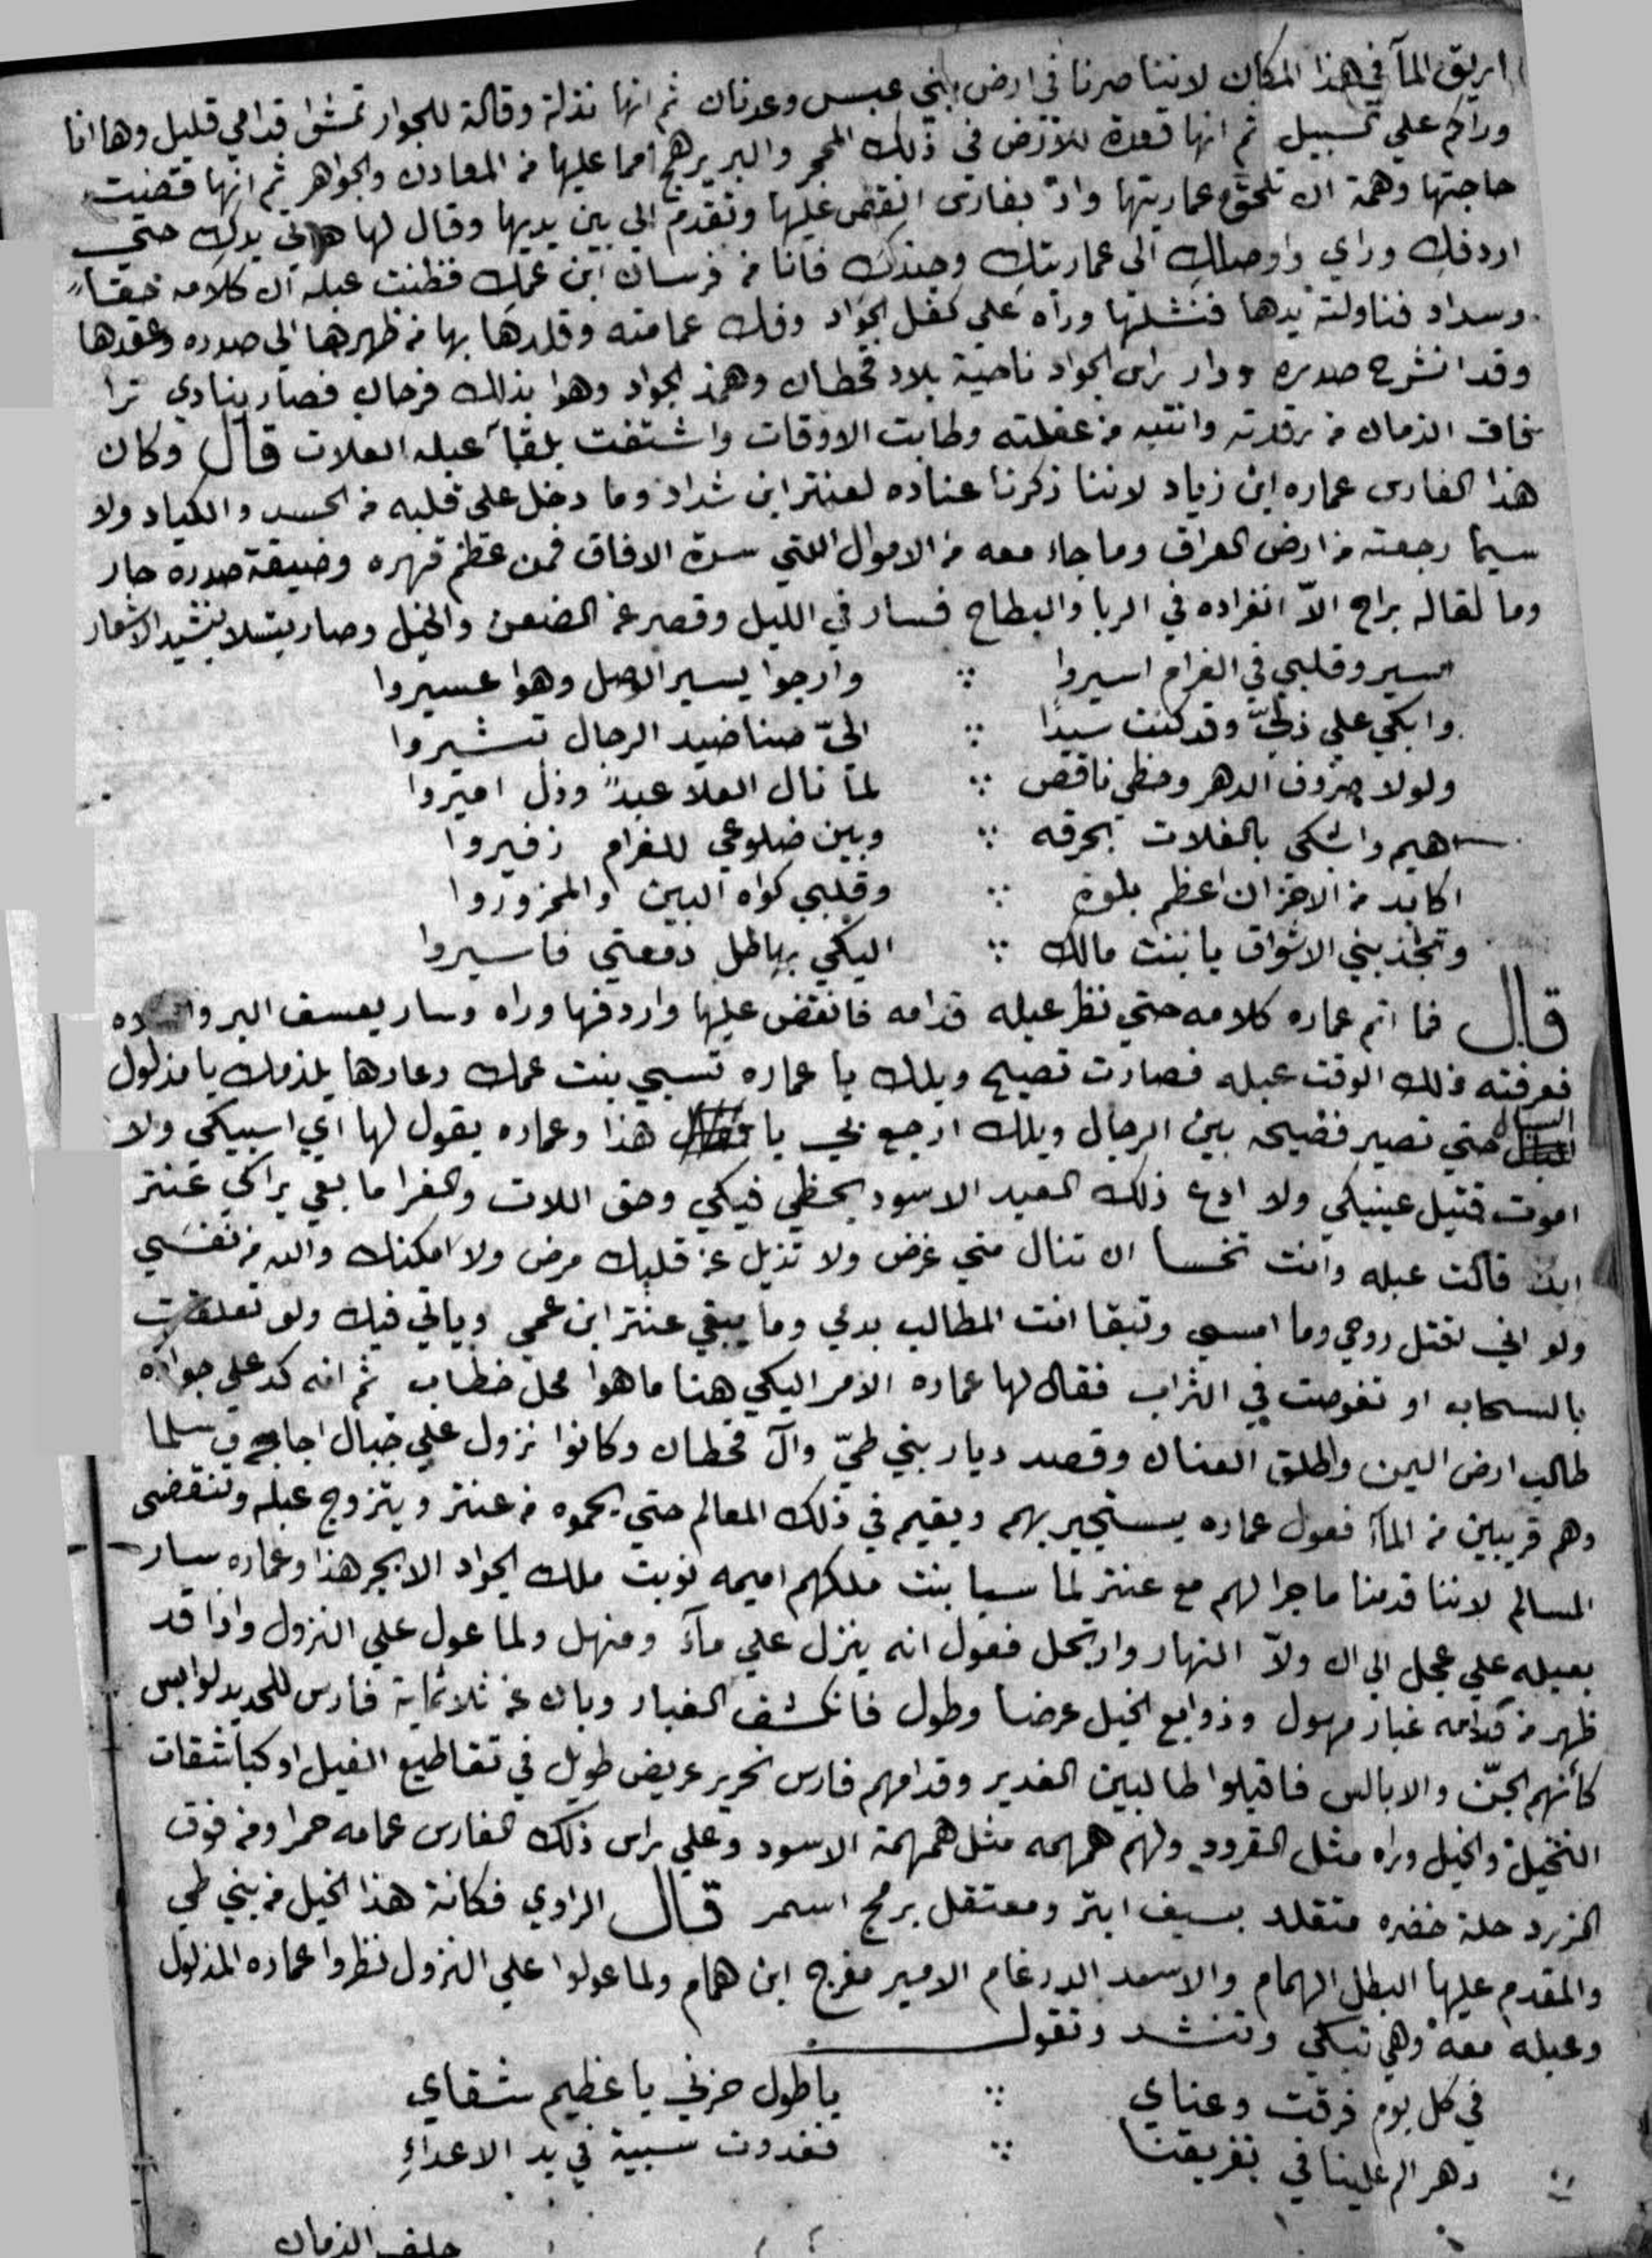 اريق المآ في هذا المكان لاننا صرنا في ارض بني عبس وعدنان ثم انها نذلة وقالة للجوار تمشوا قدامي قليل وها انا
وراكم علي تسبيل ثم انها قعدة للارض في ذلك المحجر والبر يرهج امما عليها من المعادن والجواهر ثم انها قضيت
حاجتها وهمة ان تلحق عماريتها واذ بفارس انقض عليها وتقدم الي بين يديها وقال لها هاتي يدكِ حتي
اردفكِ وراي واوصلكِ الي عماريتكِ وجندك فانا من فرسان ابن عمكِ فظنت عبله ان كلامه حقاً
وسداد فناولته يدها فنشلها وراه علي كفل الجواد وفك عمامته وقلدها بها من ظهرها الي صدره وعقدها
وقد انشرح صدره ودار راس الجواد ناحية بلاد قحطان وهمذ الجواد وهوا بذالك فرحان فصار ينادي ترا
فاق الزمان من رقدته وانتبه من غفلته وطابت الاوقات واشتفت بلقآ عبله العلات قال وكان
هذا الفارس عماره ابن زياد لاننا ذكرنا عناده لعنتر ابن شداد وما دخل علي قلبه من الحسد والكياد ولا
سيما رجعته من ارض العراق وما جاء معه من الاموال اللتي سدة الافاق فمن عظم قهره وضيقة صدره حار
وما لقاله براح الاّ انفراده في الربا والبطاح فسار في الليل وقصر عن الضعن والخيل وصار يتسلا بنشيد الاشعار
اسير وقلبي في الغرام اسيروا ؞ وارجوا يسير الوصل وهوا عسيروا
وابكي علي ذليّ وقد كنت سيداً ؞ اليّ صناضيد الرجال تشيروا
ولولا صروف الدهر وحظي ناقص ؞ لما نال العلا عبدً وذل اميروا
اهيم واشكي بالفلات بحرقه ؞ وبين ضلوعي للغرام زفيروا
اكابد من الاحزان اعظم بلوة ؞ وقلبي كواه البين والمحزوروا
وتجذبني الاشواق يا بنت مالك ؞ اليكي بهاطل دمعتي فاسيروا
قال فما اتم عماره كلامه حتي نظر عبله قدامه فانقض عليها واردفها وراه وسار يعسف البر
فعرفته ذلك الوقت عبله فصارت تصيح ويلك يا عماره تسبي بنت عمك وعارها يلزمك يا مذلول
السبال حتي تصير فضيحه بين الرجال ويلك ارجع بي يا هذا وعماره يقول لها اي اسبيكي ولا
اموت قتيل عينيكي ولا ادع ذلك العبد الاسود يحظي فيكي وحق اللات والغرا ما بقي يراكي عنتر
ابداً قالت عبله وانت تخسا ان تنال مني غرض ولا تذيل عن قلبك مرض ولا امكنك والله من نفسي
ولو اني اقتل روحي وما امسي وتبقا انت المطالب بدمي وما يبقي عنتر ابن عمي وياتي فيك ولو تعلقت
بالسحاب او تغوصت في التراب فقال لها عماره الامر اليكي هنا ما هوا محل خطاب ثم انه كد علي جواده
طالب ارض اليمن واطلق العنان وقصد ديار بني طيّ وآل قحطان وكانوا نزول علي جبال اجا وسلما
وهم قريبين من المآ فعول عماره يستجير بهم ويقيم في ذلك المعالم حتي يحموه من عنتر ويتزوج عبله وتنقضي
المسالم لاننا قدمنا ما جرا لهم مع عنتر لما سبا بنت ملكهم اميمه نوبت ملك الجواد الابجر هذا وعماره سار
بعبله علي عجل الي ان ولاّ النهار وارتحل فعول انه ينزل علي مآء ومنهل ولما عول علي النزول واذا قد
ظهر من قدامه غبار مهول وذوابع الخيل عرضا وطول فانكشف الغبار وبان عن ثلاثماية فارس للحديد لوابس
كأنهم الجنّ والابالس فاقبلوا طالبين الغدير وقدامهم فارس نحرير عريض طويل في تقاطيع الفيل او كباشقات
النخيل والخيل وراه مثل القرود ولهم همهمه مثل همهمة الاسود وعلي راس ذلك الفارس عمامه حمرا ومن فوق
الزرد حلة خضره متقلد بسيف ابتر ومعتقل برمح اسمر قال الراوي فكانة هذا الخيل من بني طي
والمقدم عليها البطل الهمام والاسد الدرغام الامير مفرج ابن همام ولما عولوا علي النزول نظروا عماره المذلول
وعبله معه وهي تبكي وتنشد وتقول
في كل يوم فرقت وعناي ؞ يا طول حزني يا عظيم شقاي
دهر الم علينا في تفريقنا ؞ فغدوت سبية في يد الاعداءِ
الزمان